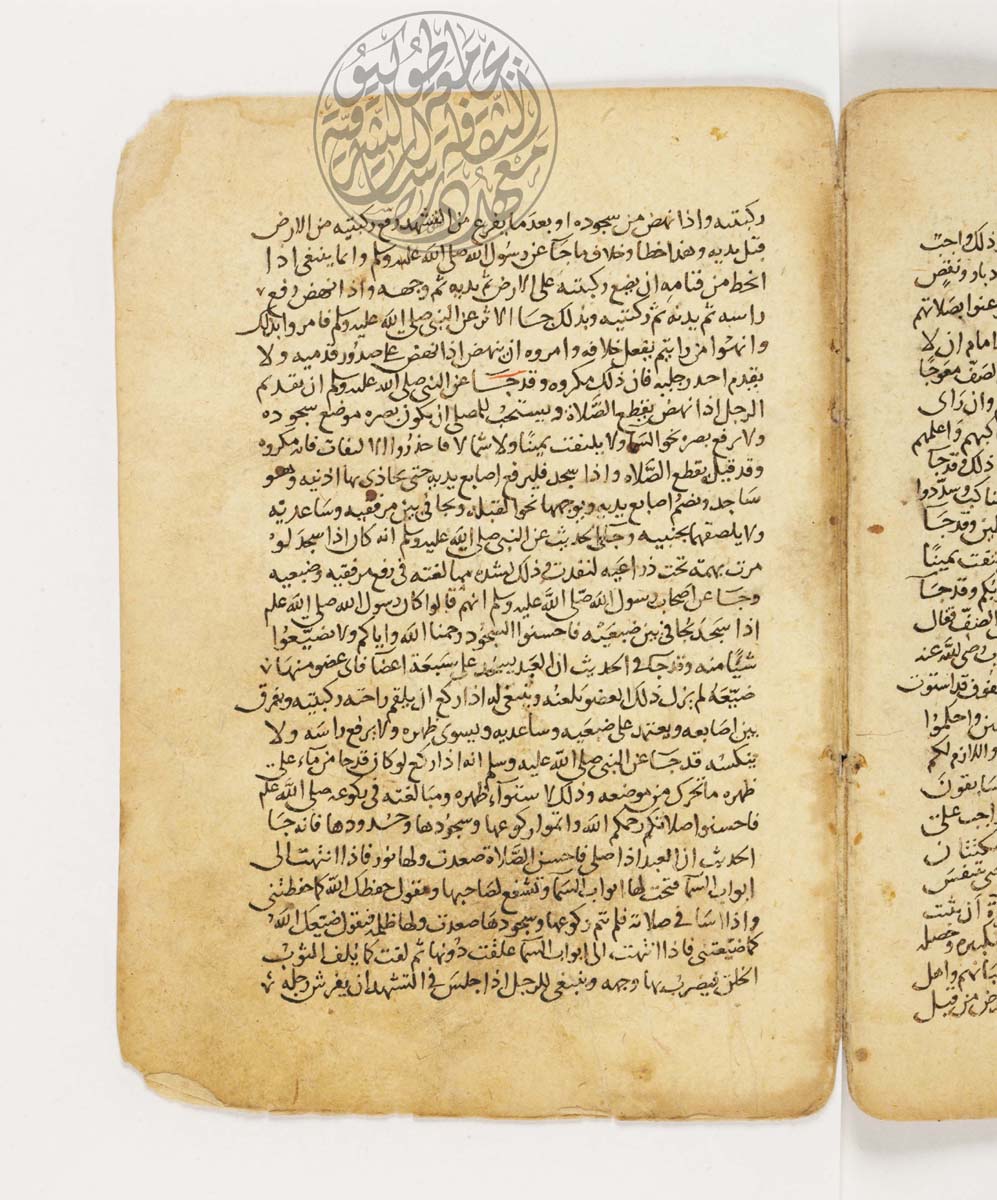 ركبتيه واذا نهض من سجوده او بعد ما يفرغ من التشهد رفع ركبتيه من الارض
قبل يديه وهذا خطا وخلاف ما جآ عن رسول الله صلى الله عليه وسلم وانما ينبغي اذا
انحط من قيامه ان يضع ركبتيه على الارض ثم يديه ثم وجهه واذا نهض رفع
راسه ثم يديه ثم ركبتيه وبذلك جا الاثر عن النبي صلى الله عليه وسلم فامروا بذلك
وانهوا من رايتم يفعل خلافه وامروه ان ينهض اذا نهض على صدور قدميه ولا
يقدم احد رجليه فان ذلك مكروه وقد جا عن النبي صلى الله عليه وسلم ان تقديم
الرجل اذا نهض يقطع الصلاة ويستحب للمصلي ان يكون بصره موضع سجوده
ولا يرفع بصره نحو السما ولا يلتفت يمينا ولا شمالا فاحذروا الالتفات فانه مكروه
وقد قيل يقطع الصلاه واذا سجد فليرفع اصابع يديه حتى يحاذي بها اذنيه وهو
ساجد ويضم اصابع يديه ويوجهها نحو القبله ويجافي بين مرفقيه وساعديه
ولا يلصقهما بجنبيه وجآ الحديث عن النبي صلى الله عليه وسلم انه كان اذا سجد لو
مرت بهمة تحت ذراعيه لنفدت وذلك لشده مبالغته في رفع مرفقيه وضبعيه
وجا عن اصحاب رسول الله صلى الله عليه وسلم انهم قالوا كان رسول الله صلى الله علم
اذا سجد يجافي بين ضبعيه فاحسنوا السجود رحمنا الله واياكم ولا تضيعوا
شيًا منه وقد جآ في الحديث ان العبد يسجد على سبعة اعضآ فاي عضو منها
ضيعه لم يزل ذلك العضو يلعنه وينبغي له اذا ركع ان يلقم راحته ركبتيه ويفرق
بين اصابعه ويعتمد على ضبعيه وساعديه ويسوي ظهره ولا يرفع راسه ولا
ينكسه قد جا عن النبي صلى الله عليه وسلم انه اذا ركع لو كان قدحا من مآء على
ظهره ما تحرك من موضعه وذلك لاستوآء ظهره ومبالغته في ركوعه صلى الله علم
فاحسنوا صلاتكم رحمكم الله واتموا ركوعها وسجودها وحدودها فانه جا
الحديث ان العبد اذا صلى فاحسن الصلاة صعدت ولها نور فاذا انتهت الى
ابواب السمآ فتحت لها ابواب السمآ وتشفع لصاحبها وتقول حفظك الله كما حفظتني
واذا اسا في صلاته فلم يتم ركوعها وسجودها صعدت ولها ظلمه فتقول ضيعك الله
كما ضيعتني فاذا انتهت الى ابواب السمآ غلقت دونها ثم لفت كما يلف الثوب
الخلق فيضرب بها وجهه وينبغي للرجل اذا جلس في التشهد ان يفرش رجله